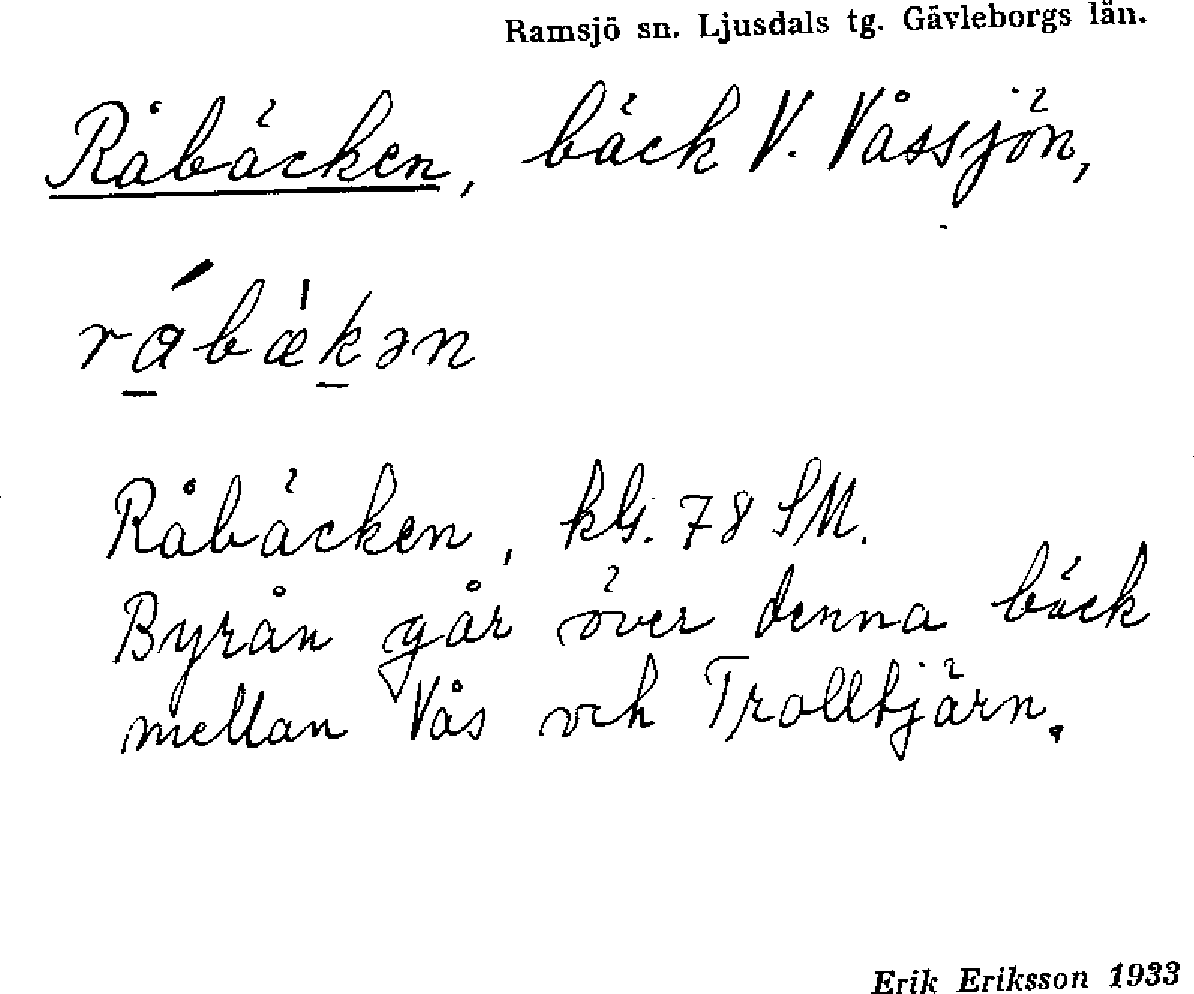 Ramsjö sn. Ljusdals tg. Gävleborgs län.
Råbäcken, bäck V. Våssjön,
rábæ̍kən
Råbäcken, kbl. 78 SM.
Byrån går över denna bäck
mellan Vås och Trolltjärn.
Erik Eriksson 1933